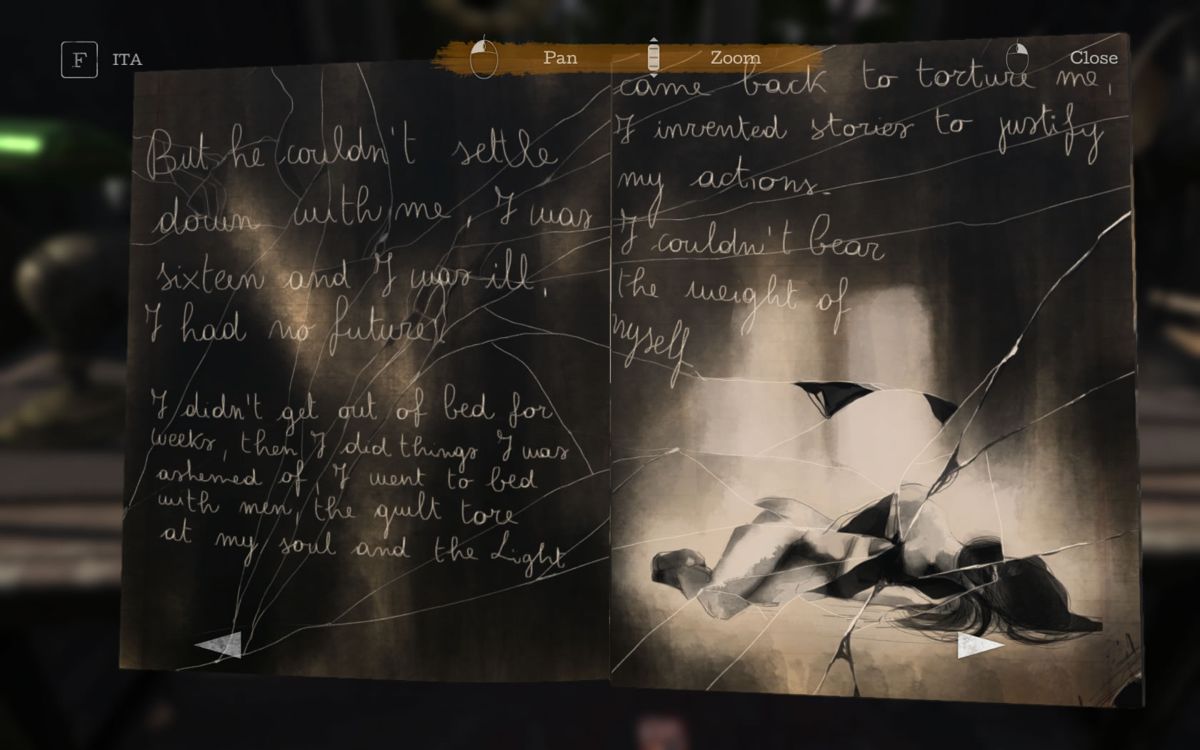 F ITA
Pan
Zoom
Close
But he couldn't settle
down with me, I was
sixteen and I was ill,
I had no future!
I didn't get out of bed for
weeks, then I did things I was
ashemed of, I went to bed
with men, the guilt tore
at my soul and the Light
came back to torture me,
I invented stories to justify
my actions.
I couldn't bear
the weight of
myself